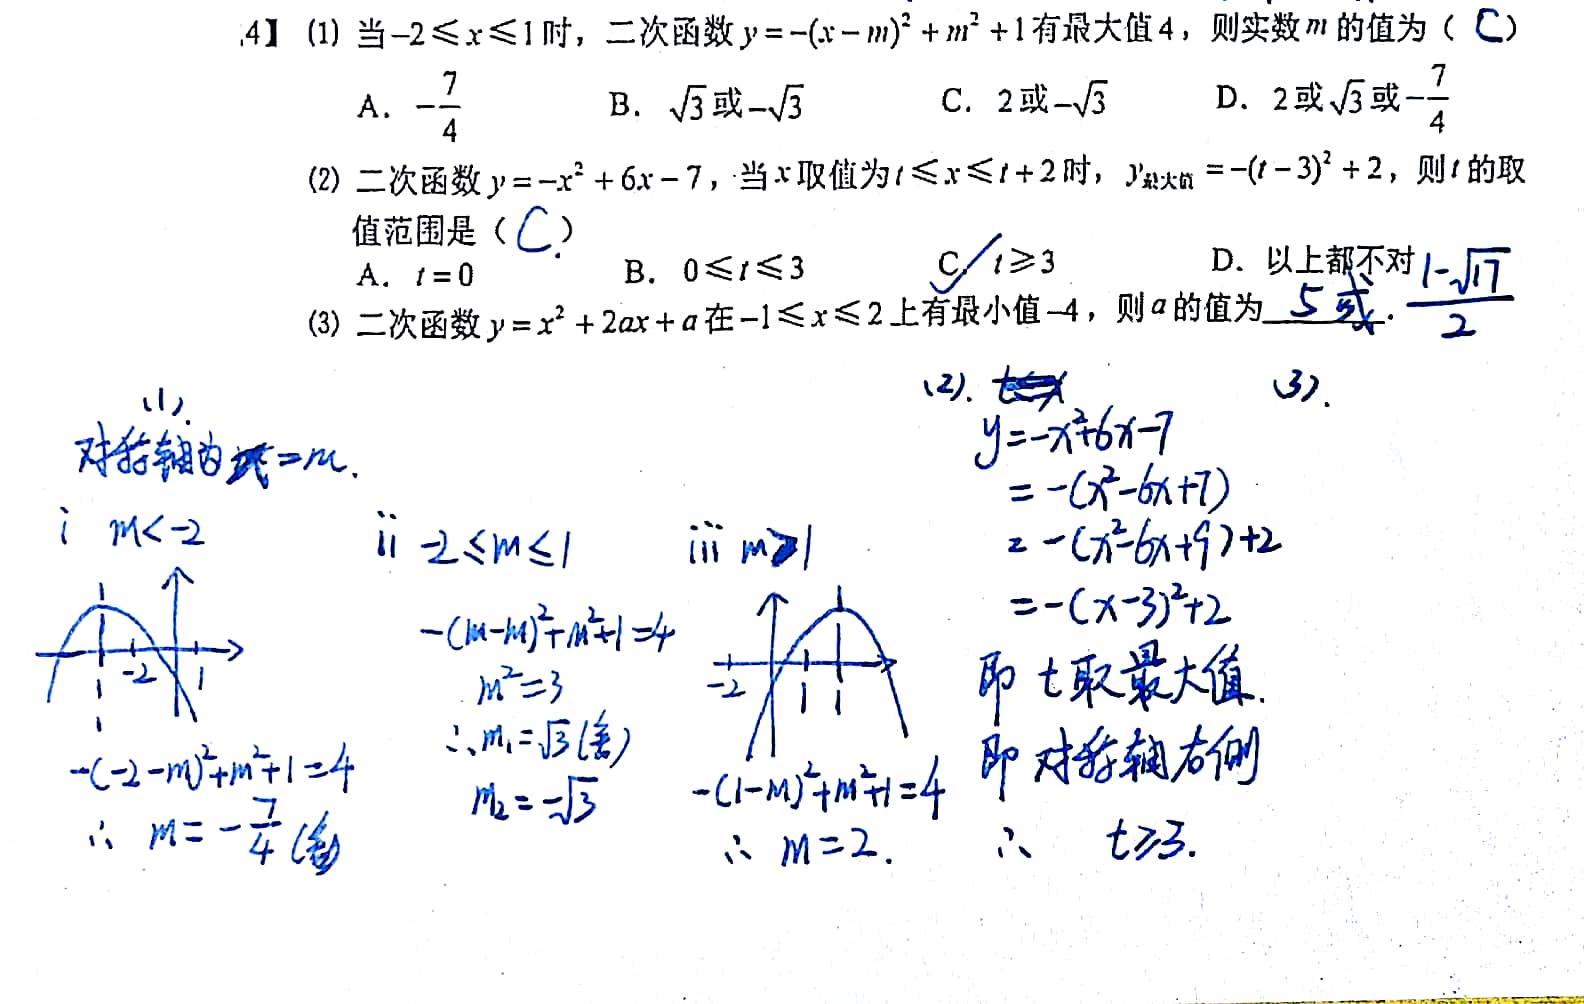 .4】 (1) 当-2≤x≤1时，二次函数y=-(x-m)²+m²+1有最大值4，则实数m的值为（ C ）
A. -7/4 B. √3或-√3 C. 2或-√3 D. 2或√3或-7/4
(2) 二次函数y=-x²+6x-7，当x取值为t≤x≤t+2时，y最大值=-(t-3)²+2，则t的取
值范围是（ C. ）
A. t=0 B. 0≤t≤3 C. t≥3 D. 以上都不对
(3) 二次函数y=x²+2ax+a在-1≤x≤2上有最小值-4，则a的值为 5 或 . (1-√17)/2
(1).
对称轴为x=m.
i m<-2
-2 1
-(-2-m)²+m²+1=4
∴ m=-7/4 (舍)
ii -2≤m≤1
-(m-m)²+m²+1=4
m²=3
∴m₁=√3(舍)
m₂=-√3
iii m>1
-2 1
-(1-m)²+m²+1=4
∴ m=2.
(2).
y=-x²+6x-7
=-(x²-6x+7)
=-(x²-6x+9)+2
=-(x-3)²+2
即 t取最大值.
即 对称轴右侧
∴ t≥3.
(3).